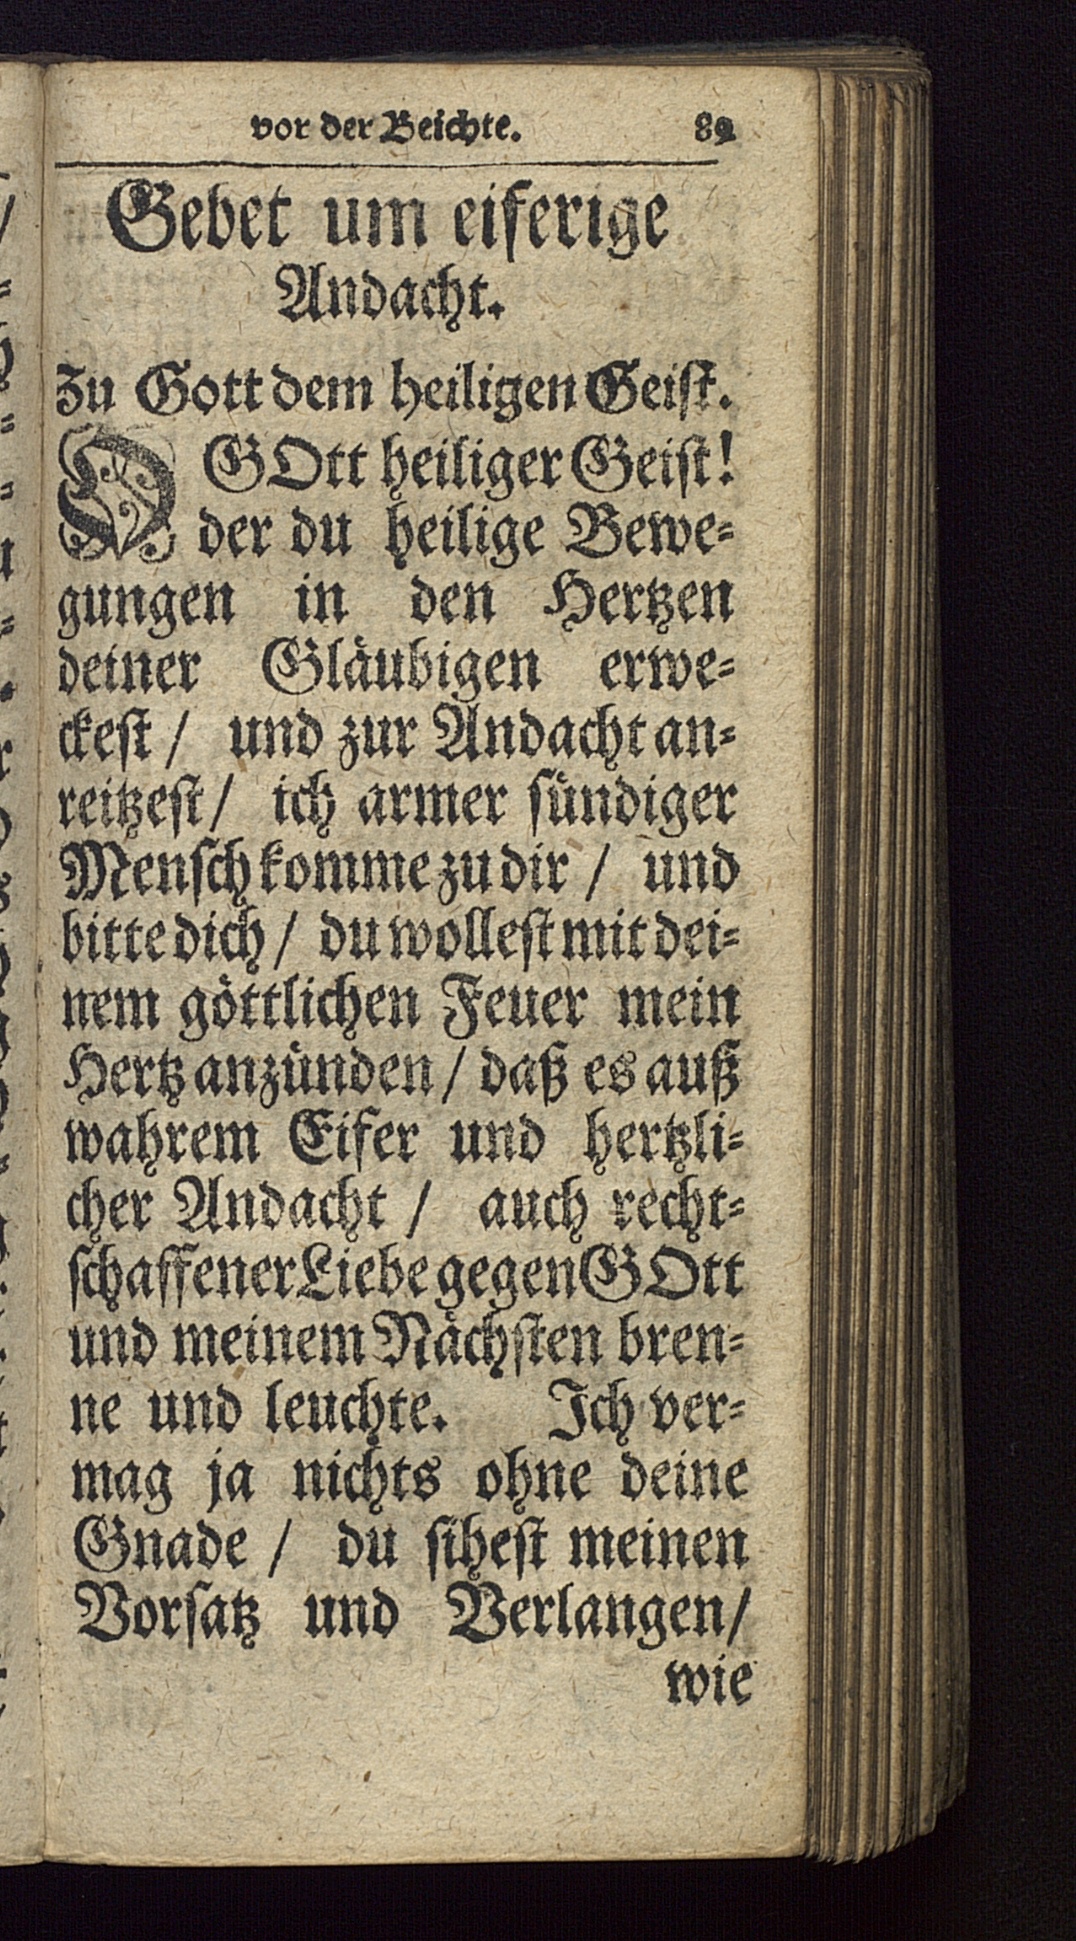 vor der Beichte. 89
Gebet um eiferige
Andacht.
Zu Gott dem heiligen Geist.
O GOtt heiliger Geist!
der du heilige Bewe-
gungen in den Hertzen
deiner Gläubigen erwe-
ckest / und zur Andacht an-
reitzest / ich armer sündiger
Mensch komme zu dir / und
bitte dich / du wollest mit dei-
nem göttlichen Feuer mein
Hertz anzünden / daß es auß
wahrem Eifer und hertzli-
cher Andacht / auch recht-
schaffener Liebe gegen GOtt
und meinem Nächsten bren-
ne und leuchte. Ich ver-
mag ja nichts ohne deine
Gnade / du sihest meinen
Vorsatz und Verlangen /
wie